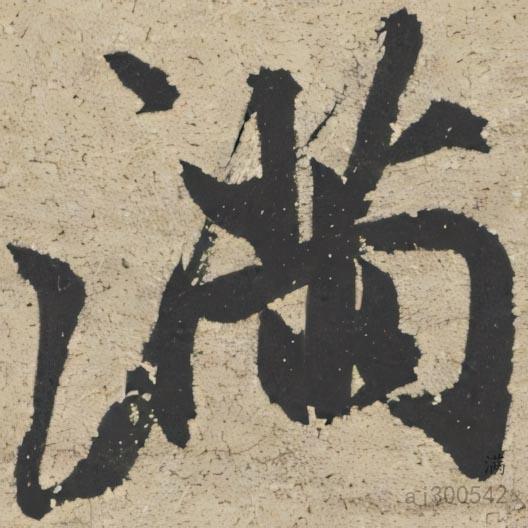 满
满
aj300542